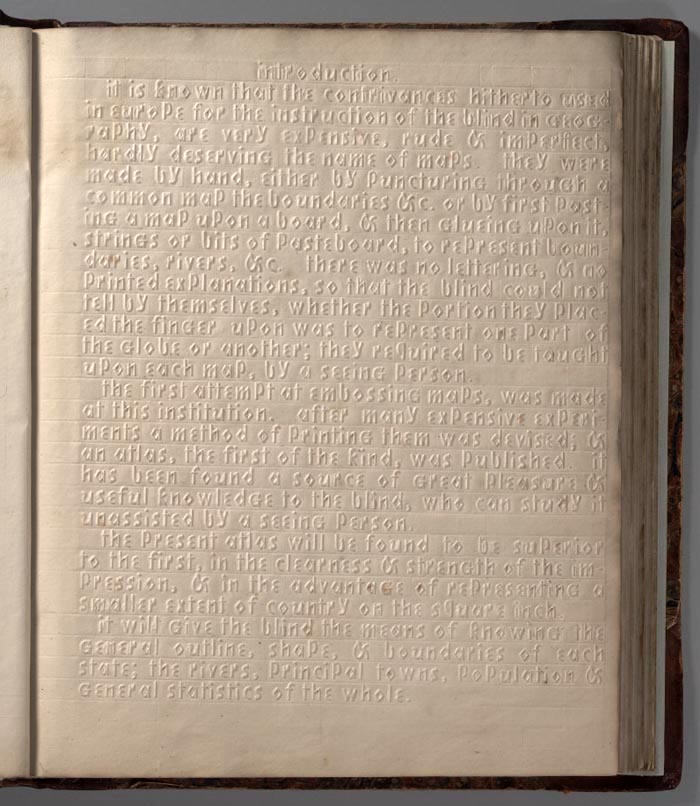 introduction.
it is known that the contrivances hitherto used
in europe for the instruction of the blind in geog-
raphy, are very expensive, rude & imperfect,
hardly deserving the name of maps. they were
made by hand, either by puncturing through a
common map the boundaries &c. or by first past-
ing a map upon a board, & then glueing upon it,
strings or bits of pasteboard, to represent boun-
daries, rivers, &c. there was no lettering, & no
printed explanations, so that the blind could not
tell by themselves, whether the portion they plac-
ed the finger upon was to represent one part of
the globe or another; they required to be taught
upon each map, by a seeing person.
the first attempt at embossing maps, was made
at this institution. after many expensive experi-
ments a method of printing them was devised; &
an atlas, the first of the kind, was published. it
has been found a source of great pleasure &
useful knowledge to the blind, who can study it
unassisted by a seeing person.
the present atlas will be found to be superior
to the first, in the clearness & strength of the im-
pression, & in the advantage of representing a
smaller extent of country on the square inch.
it will give the blind the means of knowing the
general outline, shape, & boundaries of each
state; the rivers, principal towns, population &
general statistics of the whole.